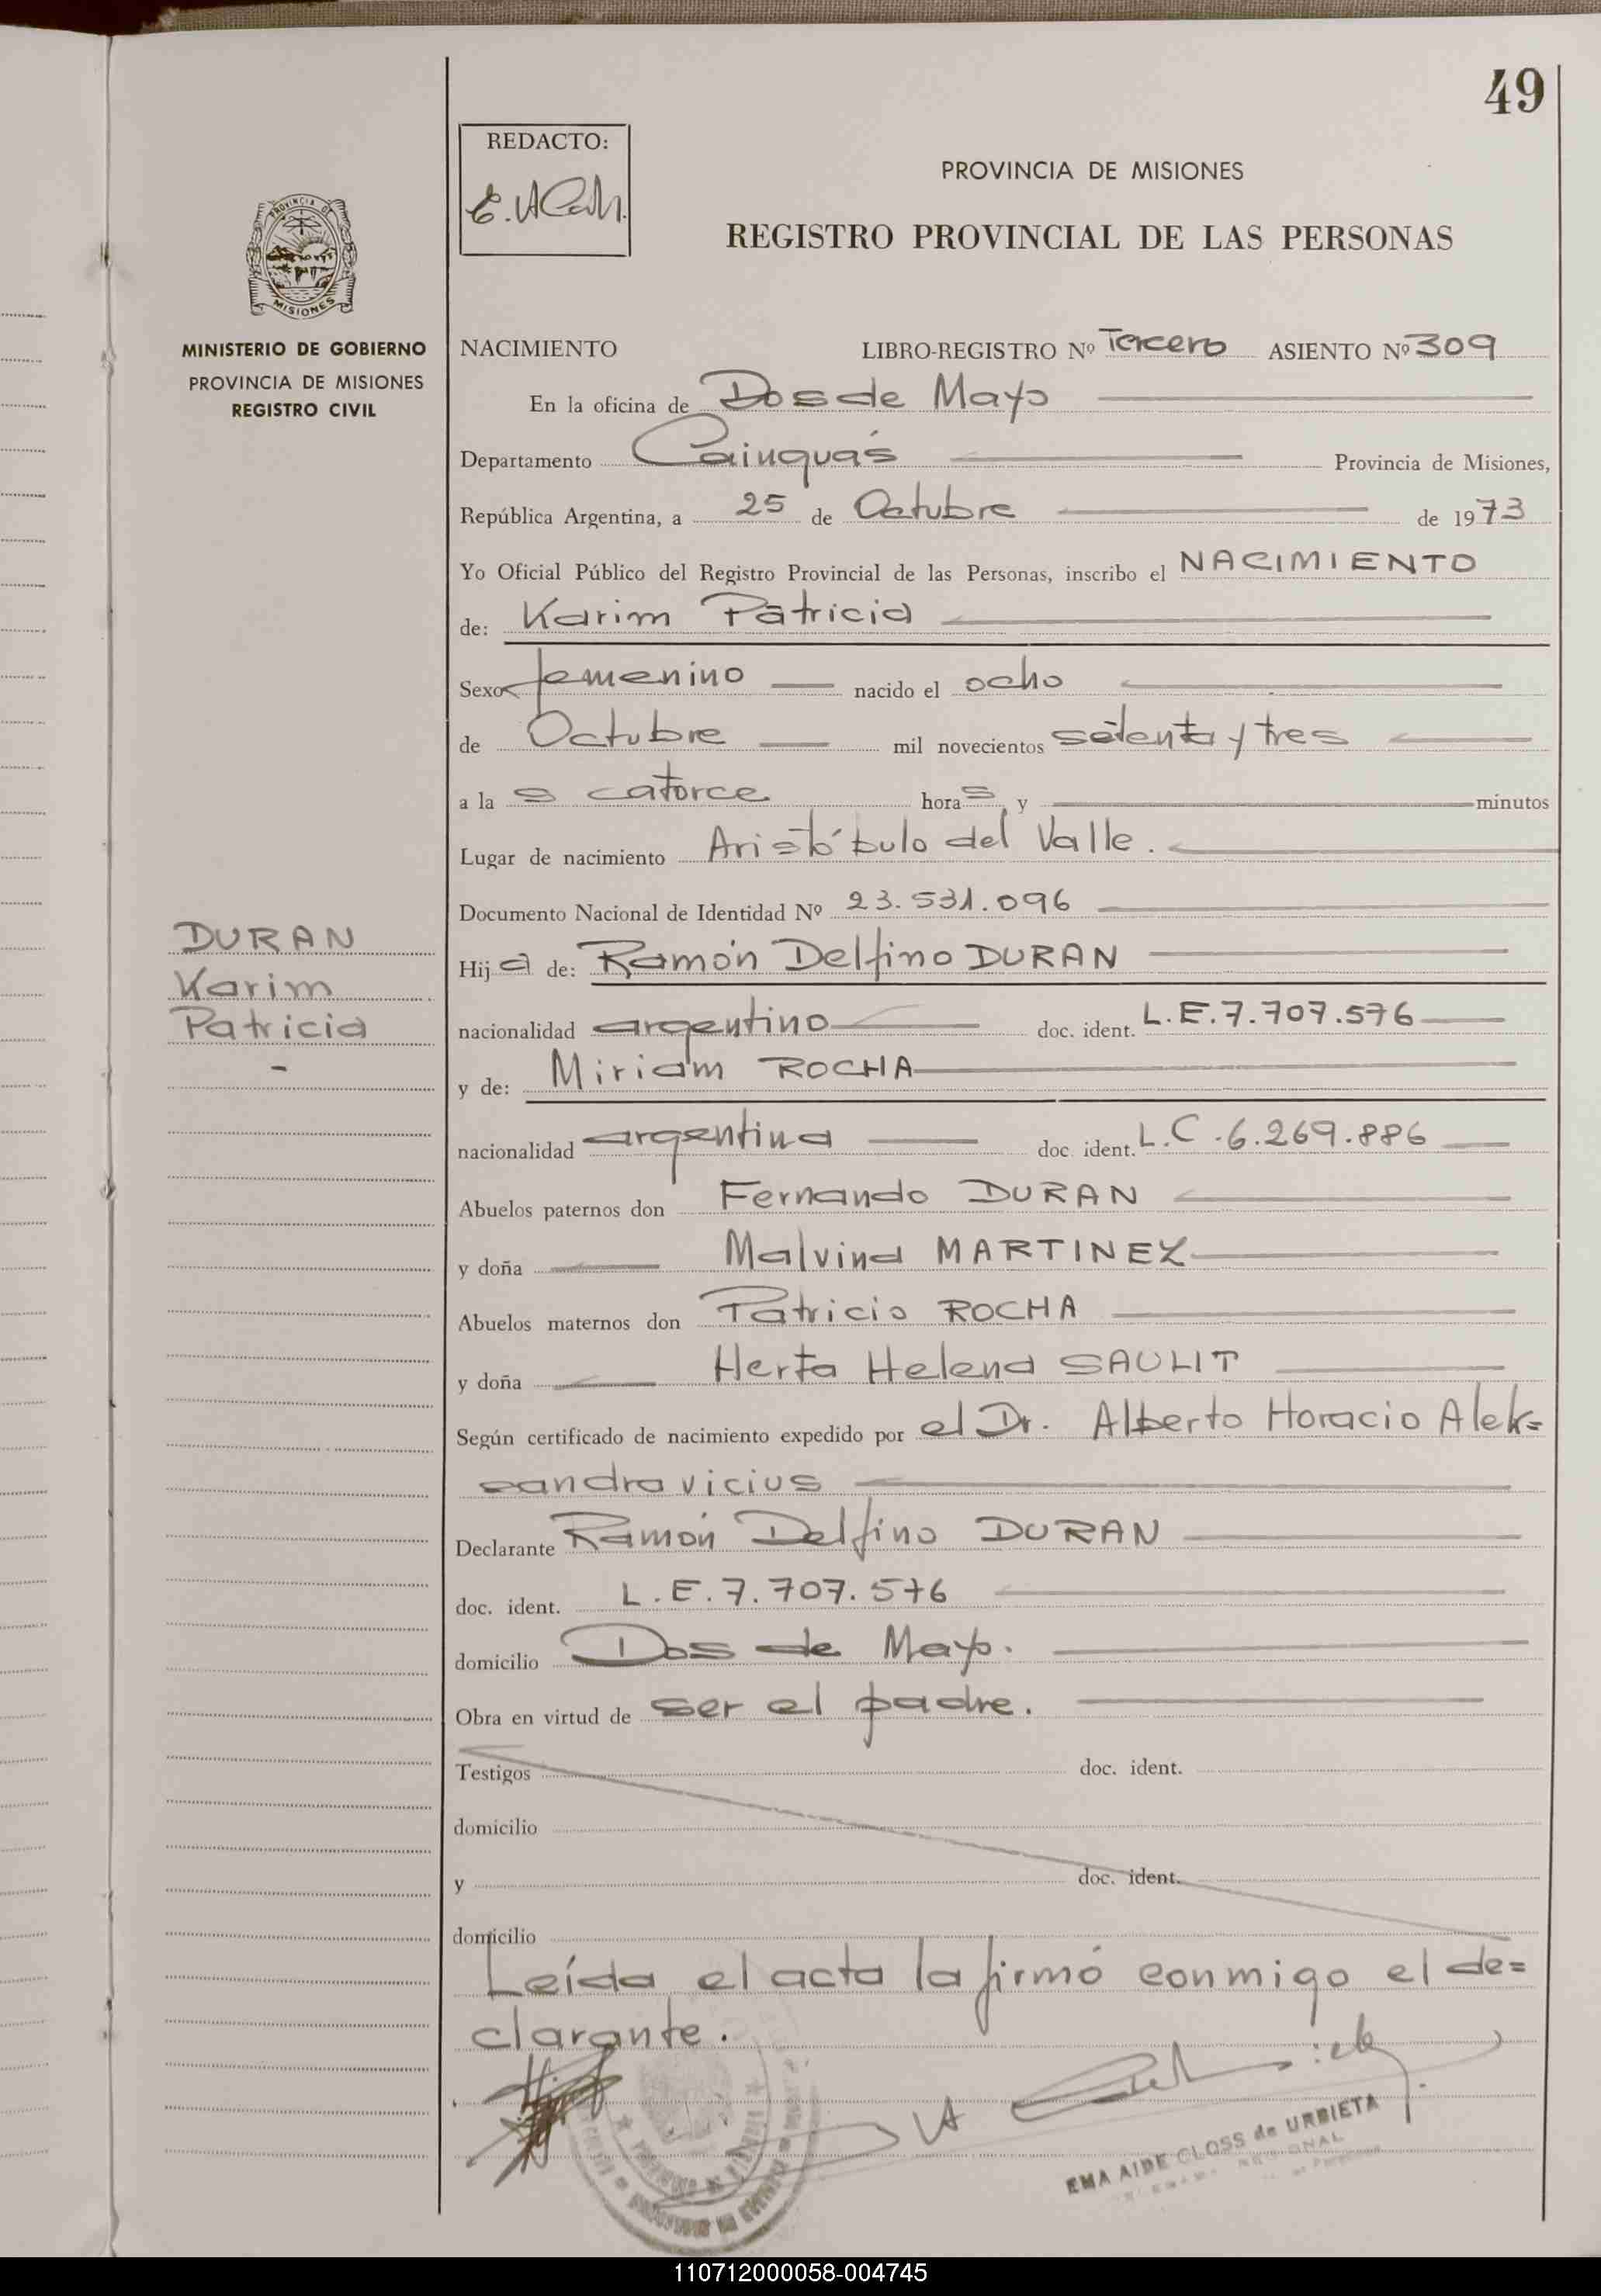 49
REDACTO:
PROVINCIA DE MISIONES
REGISTRO PROVINCIAL DE LAS PERSONAS
PROVINCIA DE
MISIONES
MINISTERIO DE GOBIERNO
PROVINCIA DE MISIONES
REGISTRO CIVIL
NACIMIENTO LIBRO-REGISTRO Nº Tercero ASIENTO Nº 309
En la oficina de Dos de Mayo
Departamento Cainguás Provincia de Misiones,
República Argentina, a 25 de Octubre de 1973
Yo Oficial Público del Registro Provincial de las Personas, inscribo el NACIMIENTO
de: Karim Patricia
Sexo femenino nacido el ocho
de Octubre mil novecientos setenta y tres
a la s catorce hora s y minutos
Lugar de nacimiento Aristóbulo del Valle.
Documento Nacional de Identidad Nº 23.531.096
DURAN
Karim
Patricia
Hij a de: Ramón Delfino DURAN
nacionalidad argentino doc. ident. L.E.7.707.576
y de: Miriam ROCHA
nacionalidad argentina doc. ident. L.C.6.269.886
Abuelos paternos don Fernando DURAN
y doña Malvina MARTINEZ
Abuelos maternos don Patricio ROCHA
y doña Herta Helena SAULIT
Según certificado de nacimiento expedido por el Dr. Alberto Horacio Alek=
sandravicius
Declarante Ramón Delfino DURAN
doc. ident. L.E.7.707.576
domicilio Dos de Mayo.
Obra en virtud de ser el padre.
Testigos doc. ident.
domicilio
y doc. ident.
domicilio
Leída el acta la firmó conmigo el de=
clarante.
EMA AIDE CLOSS de URBIETA
110712000058-004745